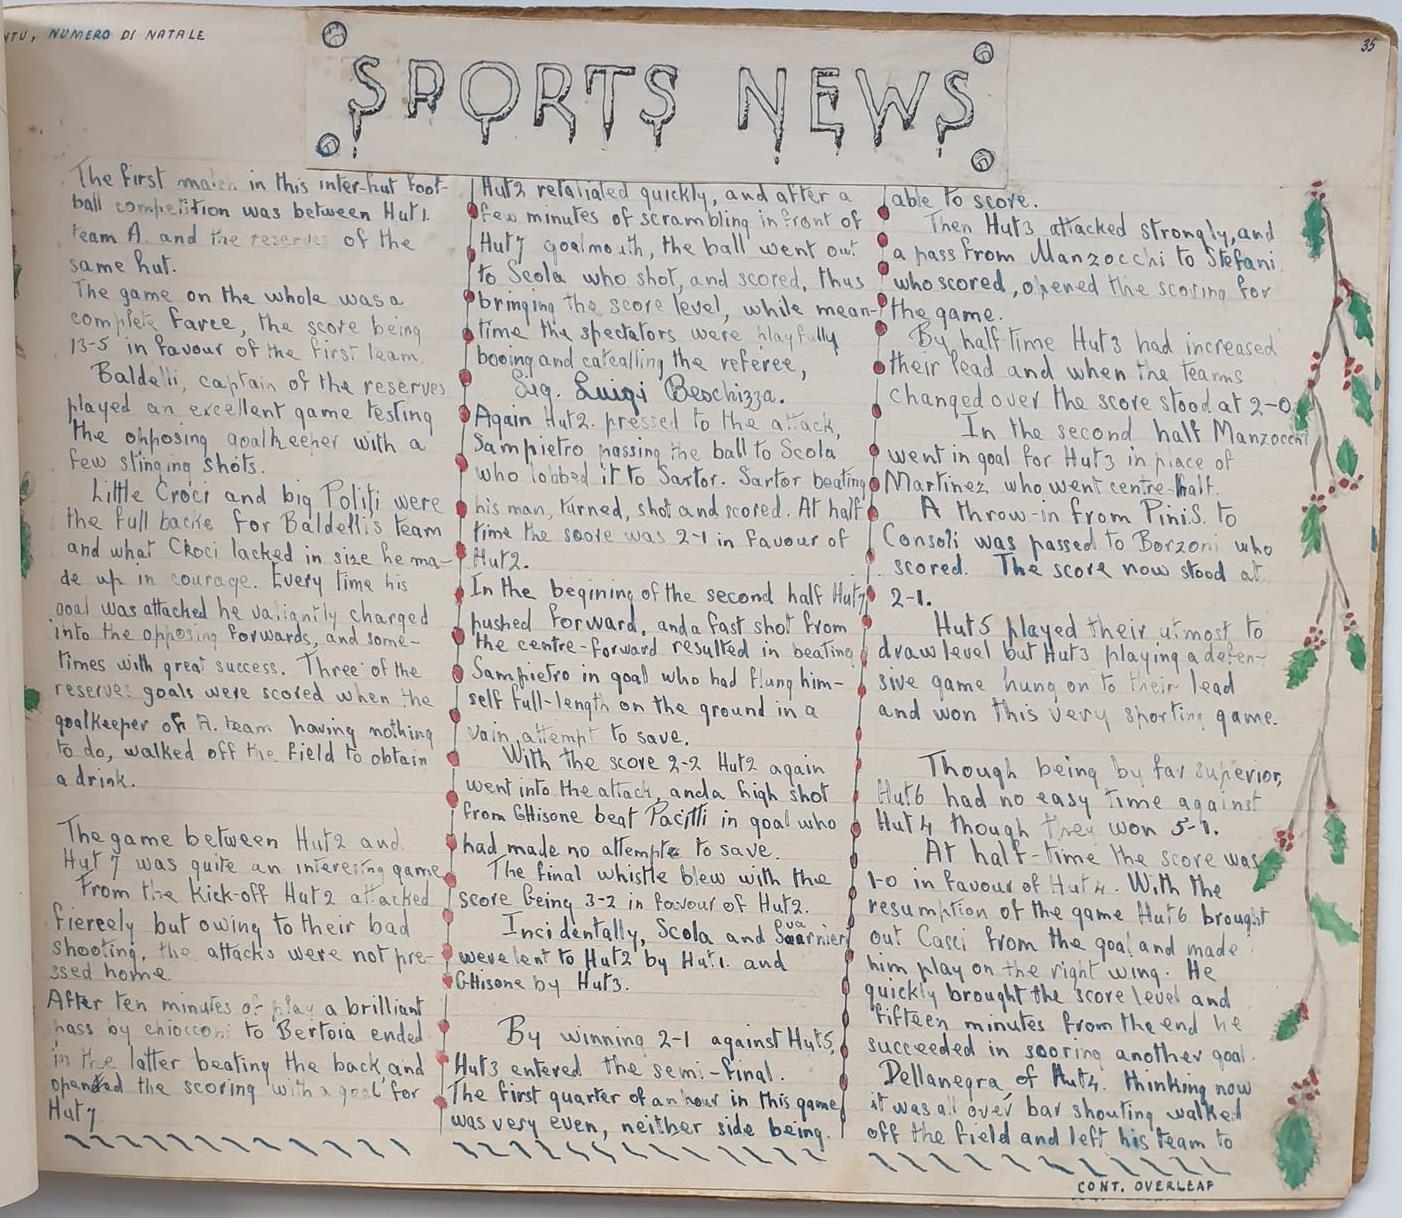 NTU, NUMERO DI NATALE
35
SPORTS NEWS
The first match in this inter-hut foot-
ball competition was between Hut1.
team A. and the reserves of the
same hut.
The game on the whole was a
complete farce, the score being
13-5 in favour of the first team.
Baldelli, captain of the reserves
played an excellent game testing
the opposing goalkeeper with a
few stinging shots.
Little Croci and big Politi were
the full backs for Baldelli's team
and what Croci lacked in size he ma-
de up in courage. Every time his
goal was attacked he valiantly charged
into the opposing forwards, and some-
times with great success. Three of the
reserves goals were scored when the
goalkeeper of A. team having nothing
to do, walked off the field to obtain
a drink.
The game between Hut2 and
Hut7 was quite an interesting game
From the kick-off Hut2 attacked
fiercely but owing to their bad
shooting, the attacks were not pre-
ssed home.
After ten minutes of play a brilliant
pass by chiocconi to Bertoia ended
in the latter beating the back and
opened the scoring with a goal for
Hut7
Hut2 retaliated quickly, and after a
few minutes of scrambling in front of
Hut7 goalmouth, the ball went out
to Scola who shot, and scored, thus
bringing the score level, while mean-
time the spectators were playfully
booing and catcalling the referee,
Sig. Luigi Beschizza.
Again Hut2. pressed to the attack,
Sampietro passing the ball to Scola
who lobbed it to Sartor. Sartor beating
his man, turned, shot and scored. At half
time the score was 2-1 in favour of
Hut2.
In the begining of the second half Hut7
pushed forward, and a fast shot from
the centre-forward resulted in beating
Sampietro in goal who had flung him-
self full-length on the ground in a
vain attempt to save.
With the score 2-2 Hut2 again
went into the attack, and a high shot
from GHisone beat Pacitti in goal who
had made no attempt to save.
The final whistle blew with the
score being 3-2 in favour of Hut2.
Incidentally, Scola and
were lent to Hut2 by Hut1. and
GHisone by Hut3.
By winning 2-1 against Hut5,
Hut3 entered the semi-final.
The first quarter of an hour in this game
was very even, neither side being
able to score.
Then Hut3 attacked strongly, and
a pass from Manzocchi to Stefani
who scored, opened the scoring for
the game.
By half-time Hut3 had increased
their lead and when the teams
changed over the score stood at 2-0
In the second half Manzocchi
went in goal for Hut3 in place of
Martinez who went centre-half.
A throw-in from Pini.S. to
Consoli was passed to Borzoni who
scored. The score now stood at
2-1.
Hut5 played their utmost to
draw level but Hut3 playing a defen-
sive game hung on to their lead
and won this very sporting game.
Though being by far superior,
Hut6 had no easy time against
Hut4 though they won 5-1.
At half-time the score was
1-0 in favour of Hut4. With the
resumption of the game Hut6 brought
out Casci from the goal and made
him play on the right wing. He
quickly brought the score level and
fifteen minutes from the end he
succeeded in scoring another goal.
Dellanegra of Hut4. thinking now
it was all over bar shouting walked
off the field and left his team to
CONT. OVERLEAF